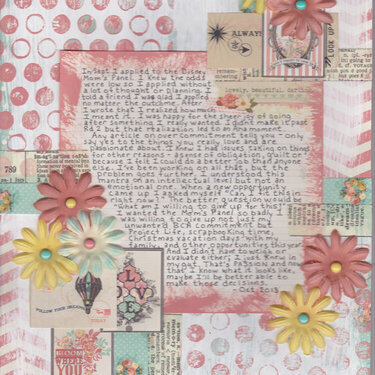 ALWAYS
LOOK UP!
remem-
bering
lovely, beautiful,
In Sept I applied to the Disney
Mom's Panel. I knew the odds
were low so I applied without
a lot of thought or planning. I
told a friend I was glad I applied
no matter the outcome. After
I wrote that I realized how much
I meant it. I was happy for the sheer joy of going
after something I really wanted. I didn't make it past
Rd 2 but that realization led to an Aha moment.
Any article on overcommitment tells you - only
say yes to the things you really love and are
passionate about. I knew I had issues taking on things
for other reasons - a sense of obligation, guilt or
because I felt I could do a better job than anyone
else. I've been working on all those but the
problem goes further. I understood this
mantra on an intellectual level but not an
emotional one. When a new opportunity
came up I asked myself "Can I fit this in
right now?" The better question would be
"What am I willing to give up for this?"
I wanted the Mom's Panel so badly I
was willing to give up not just my
unwanted BCA commitment but
Project Life, scrapbooking time,
Christmas vacation days with my
family, and other opportunities this year.
And I didn't had to
evaluate either; I just knew in
my gut. That's Passion and now
that I know what it looks like,
maybe I'll be better able to
make those decisions.
Oct 2013
789
FOLLOW YOUR DREAMS
LOVE
BLOOM
WHERE
YOU